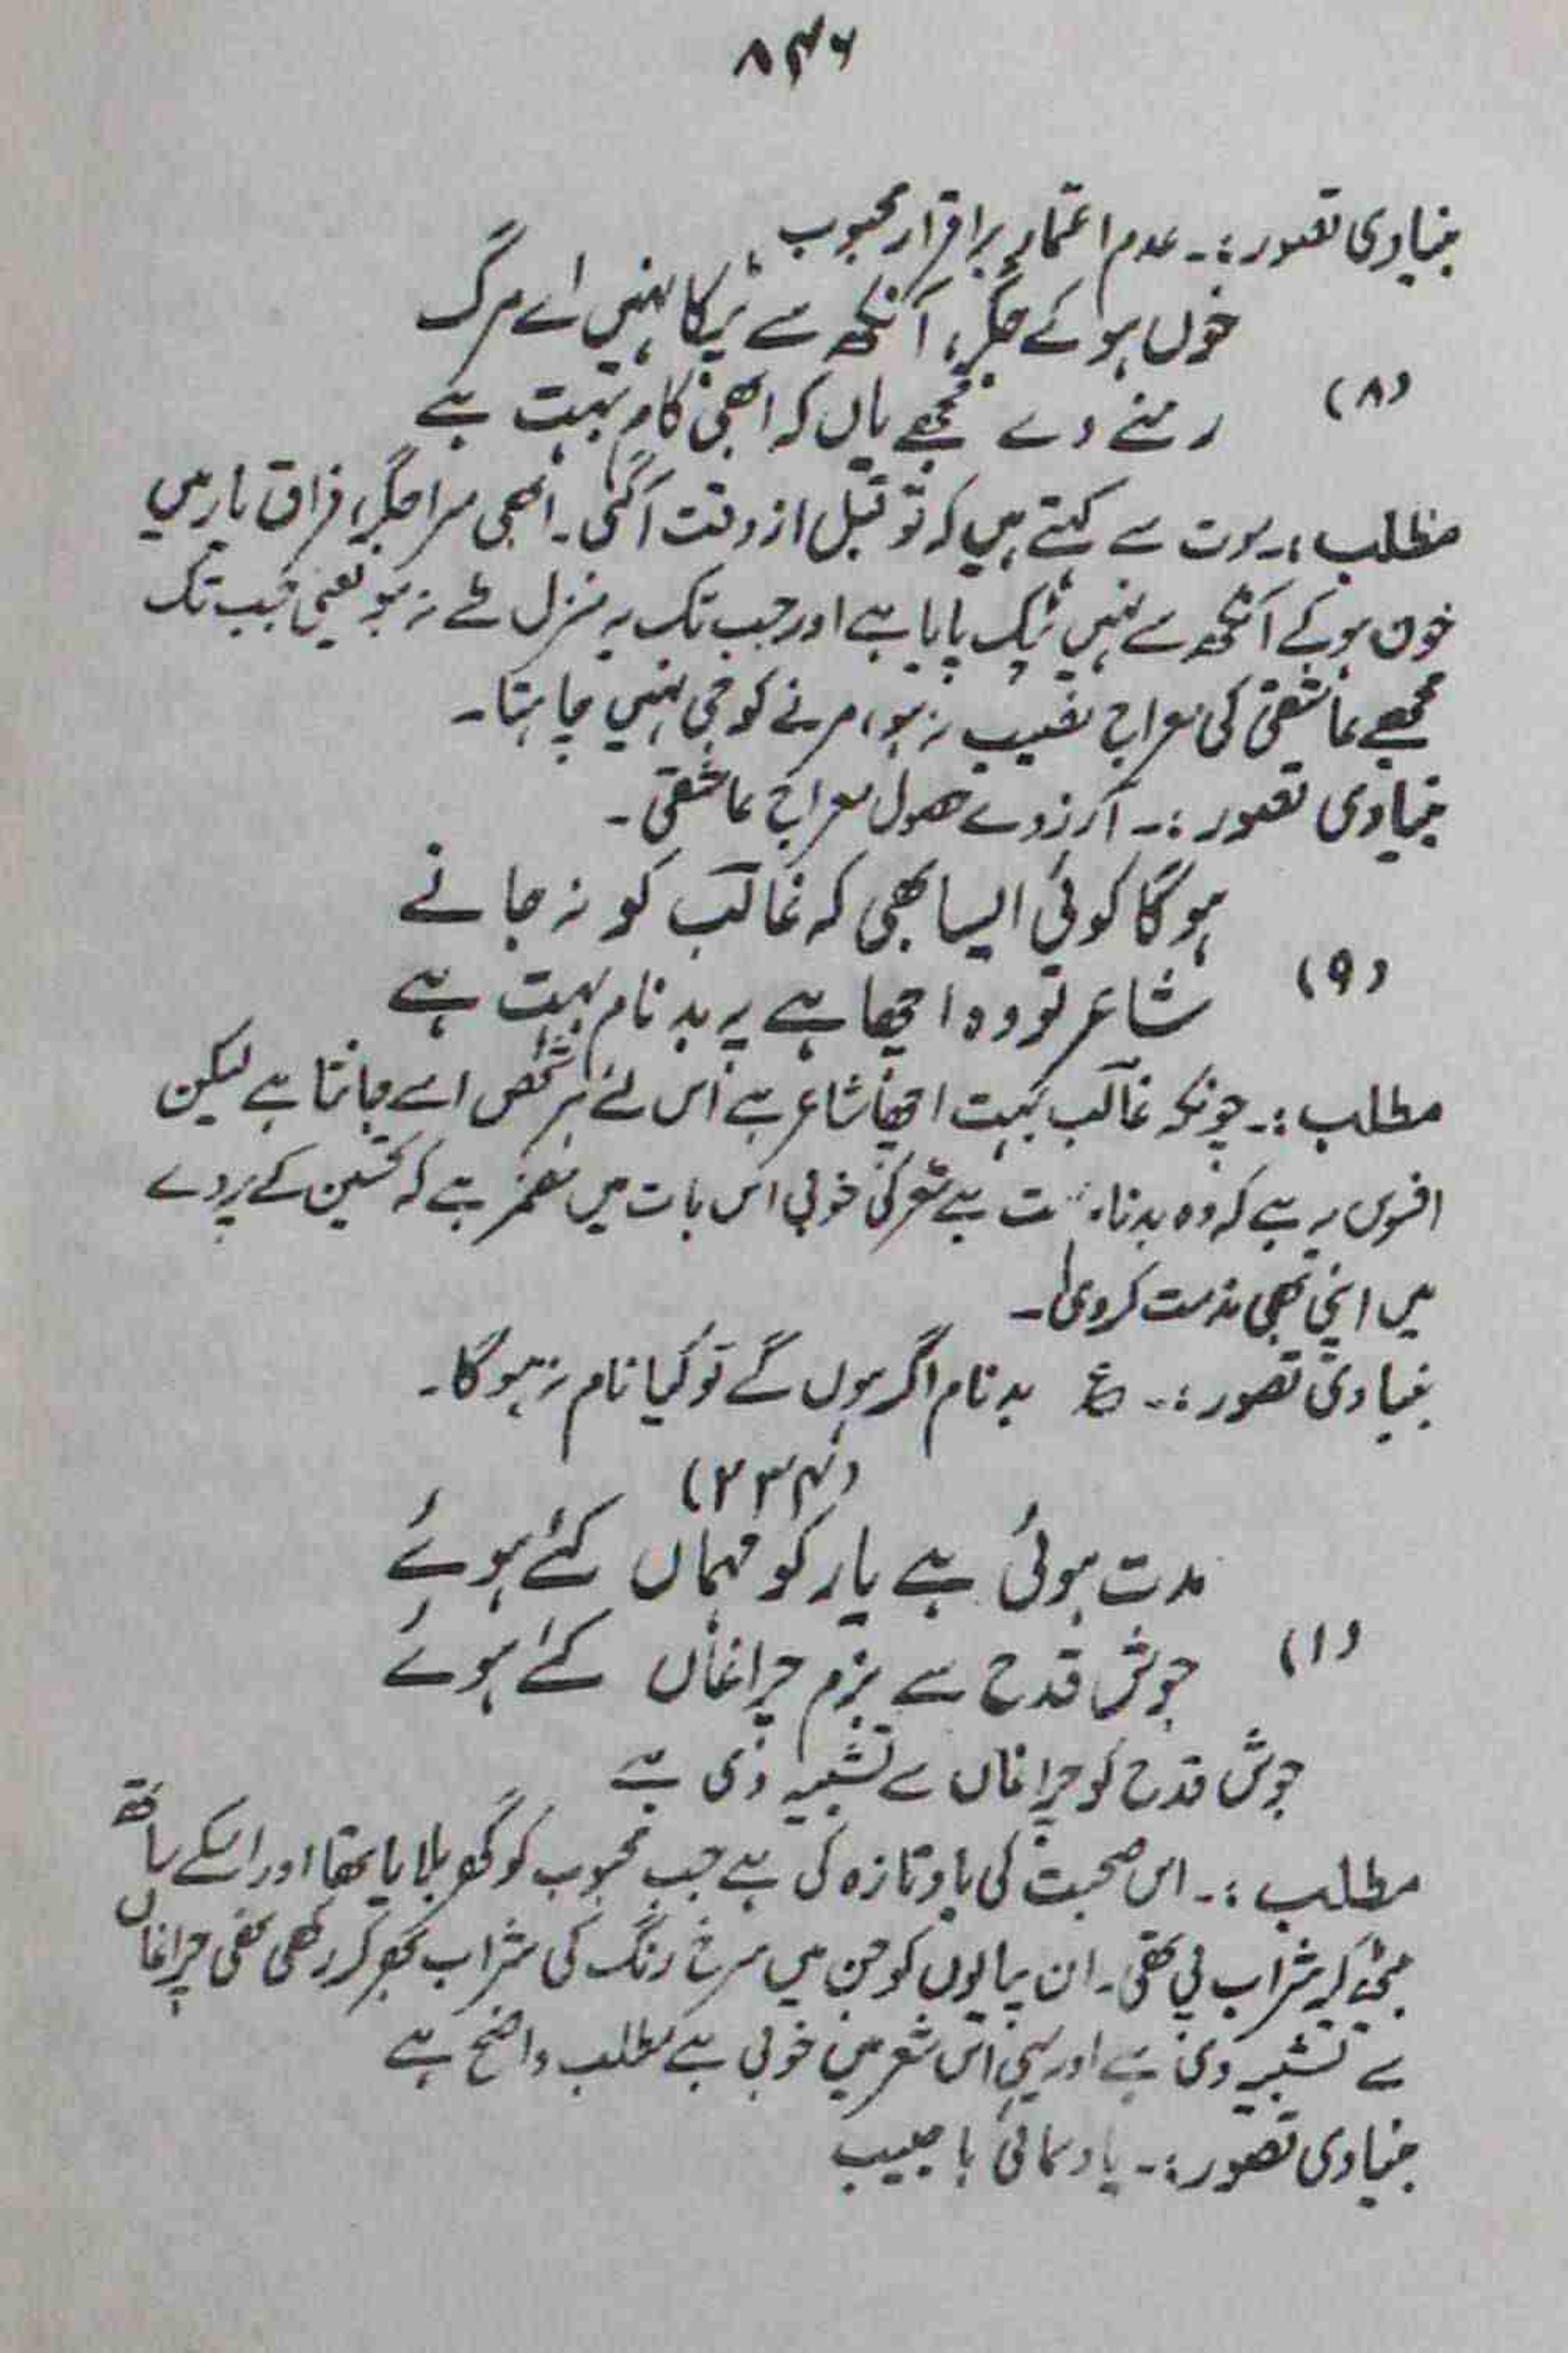 ۸۴۶
بنیادی تصور :۔ عدم اعتماد بر اقرار محبوب
خوں ہو کے جگر، آنکھ سے ٹپکا نہیں اے مرگ
(۸)
رہنے دے مجھے یاں کہ ابھی کام بہت ہے
مطلب :۔ موت سے کہتے ہیں کہ تو قبل از وقت آگئی۔ ابھی مرا جگر، فراق یار میں
خون ہو کے آنکھ سے نہیں ٹپک پایا ہے اور جب تک یہ منزل طے نہ ہو یعنی جب تک
مجھے عاشقی کی معراج نصیب نہ ہو، مرنے کو جی نہیں چاہتا۔
بنیادی تصور :۔ آرزوے حصول معراج عاشقی۔
ہوگا کوئی ایسا بھی کہ غالب کو نہ جانے
(۹)
شاعر تو وہ اچھا ہے پہ بدنام بہت ہے
مطلب :۔ چونکہ غالب بہت اچھا شاعر ہے اس لئے ہر شخص اسے جانتا ہے لیکن
افسوس یہ ہے کہ وہ ہے شعر کی خوبی اس بات میں مضمر ہے کہ تحسین کے پردے
میں اپنی بھی مذمت کردی۔
بنیادی تصور :۔ ع بدنام اگر ہوں گے تو کیا نام نہ ہوگا۔
(۲۳۴)
مدت ہوئی ہے یار کو مہماں کئے ہوئے
(۱)
جوش قدح سے بزم چراغاں کئے ہوئے
جوش قدح کو چراغاں سے تشبیہ دی ہے
مطلب :۔ اس صحبت کی یاد تازہ کی ہے جب محبوب کو گھر بلایا تھا اور اسکے ساتھ
بیٹھ کر شراب پی تھی۔ ان پیالوں کو جن میں سرخ رنگ کی شراب بھر کر رکھی تھی چراغاں
سے تشبیہ دی ہے اور یہی اس شعر میں خوبی ہے مطلب واضح ہے
بنیادی تصور :۔ با حبیب